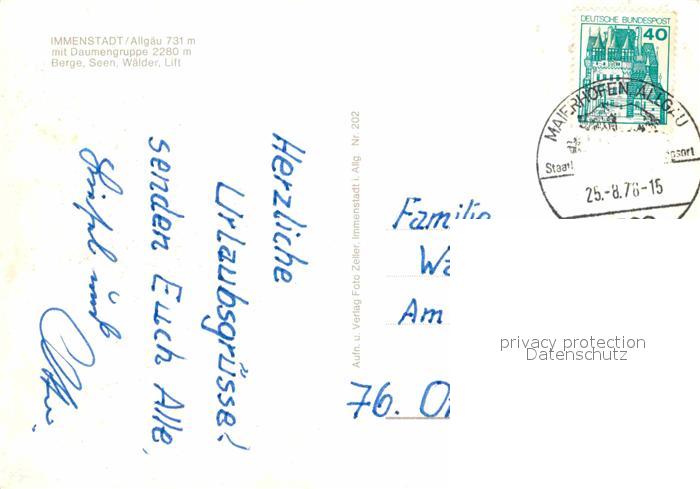 IMMENSTADT/Allgäu 731 m
mit Daumengruppe 2280 m
Berge, Seen, Wälder, Lift
DEUTSCHE BUNDESPOST
40
MAIERHÖFEN, ALLGÄU
Staatl
ngsort
25.-8.78-15
Herzliche
Urlaubsgrüsse!
senden Euch Alle,
Aufn. u. Verlag Foto Zeller, Immenstadt i. Allg. Nr. 202
Familie
Wa
Am
76. O
privacy protection
Datenschutz